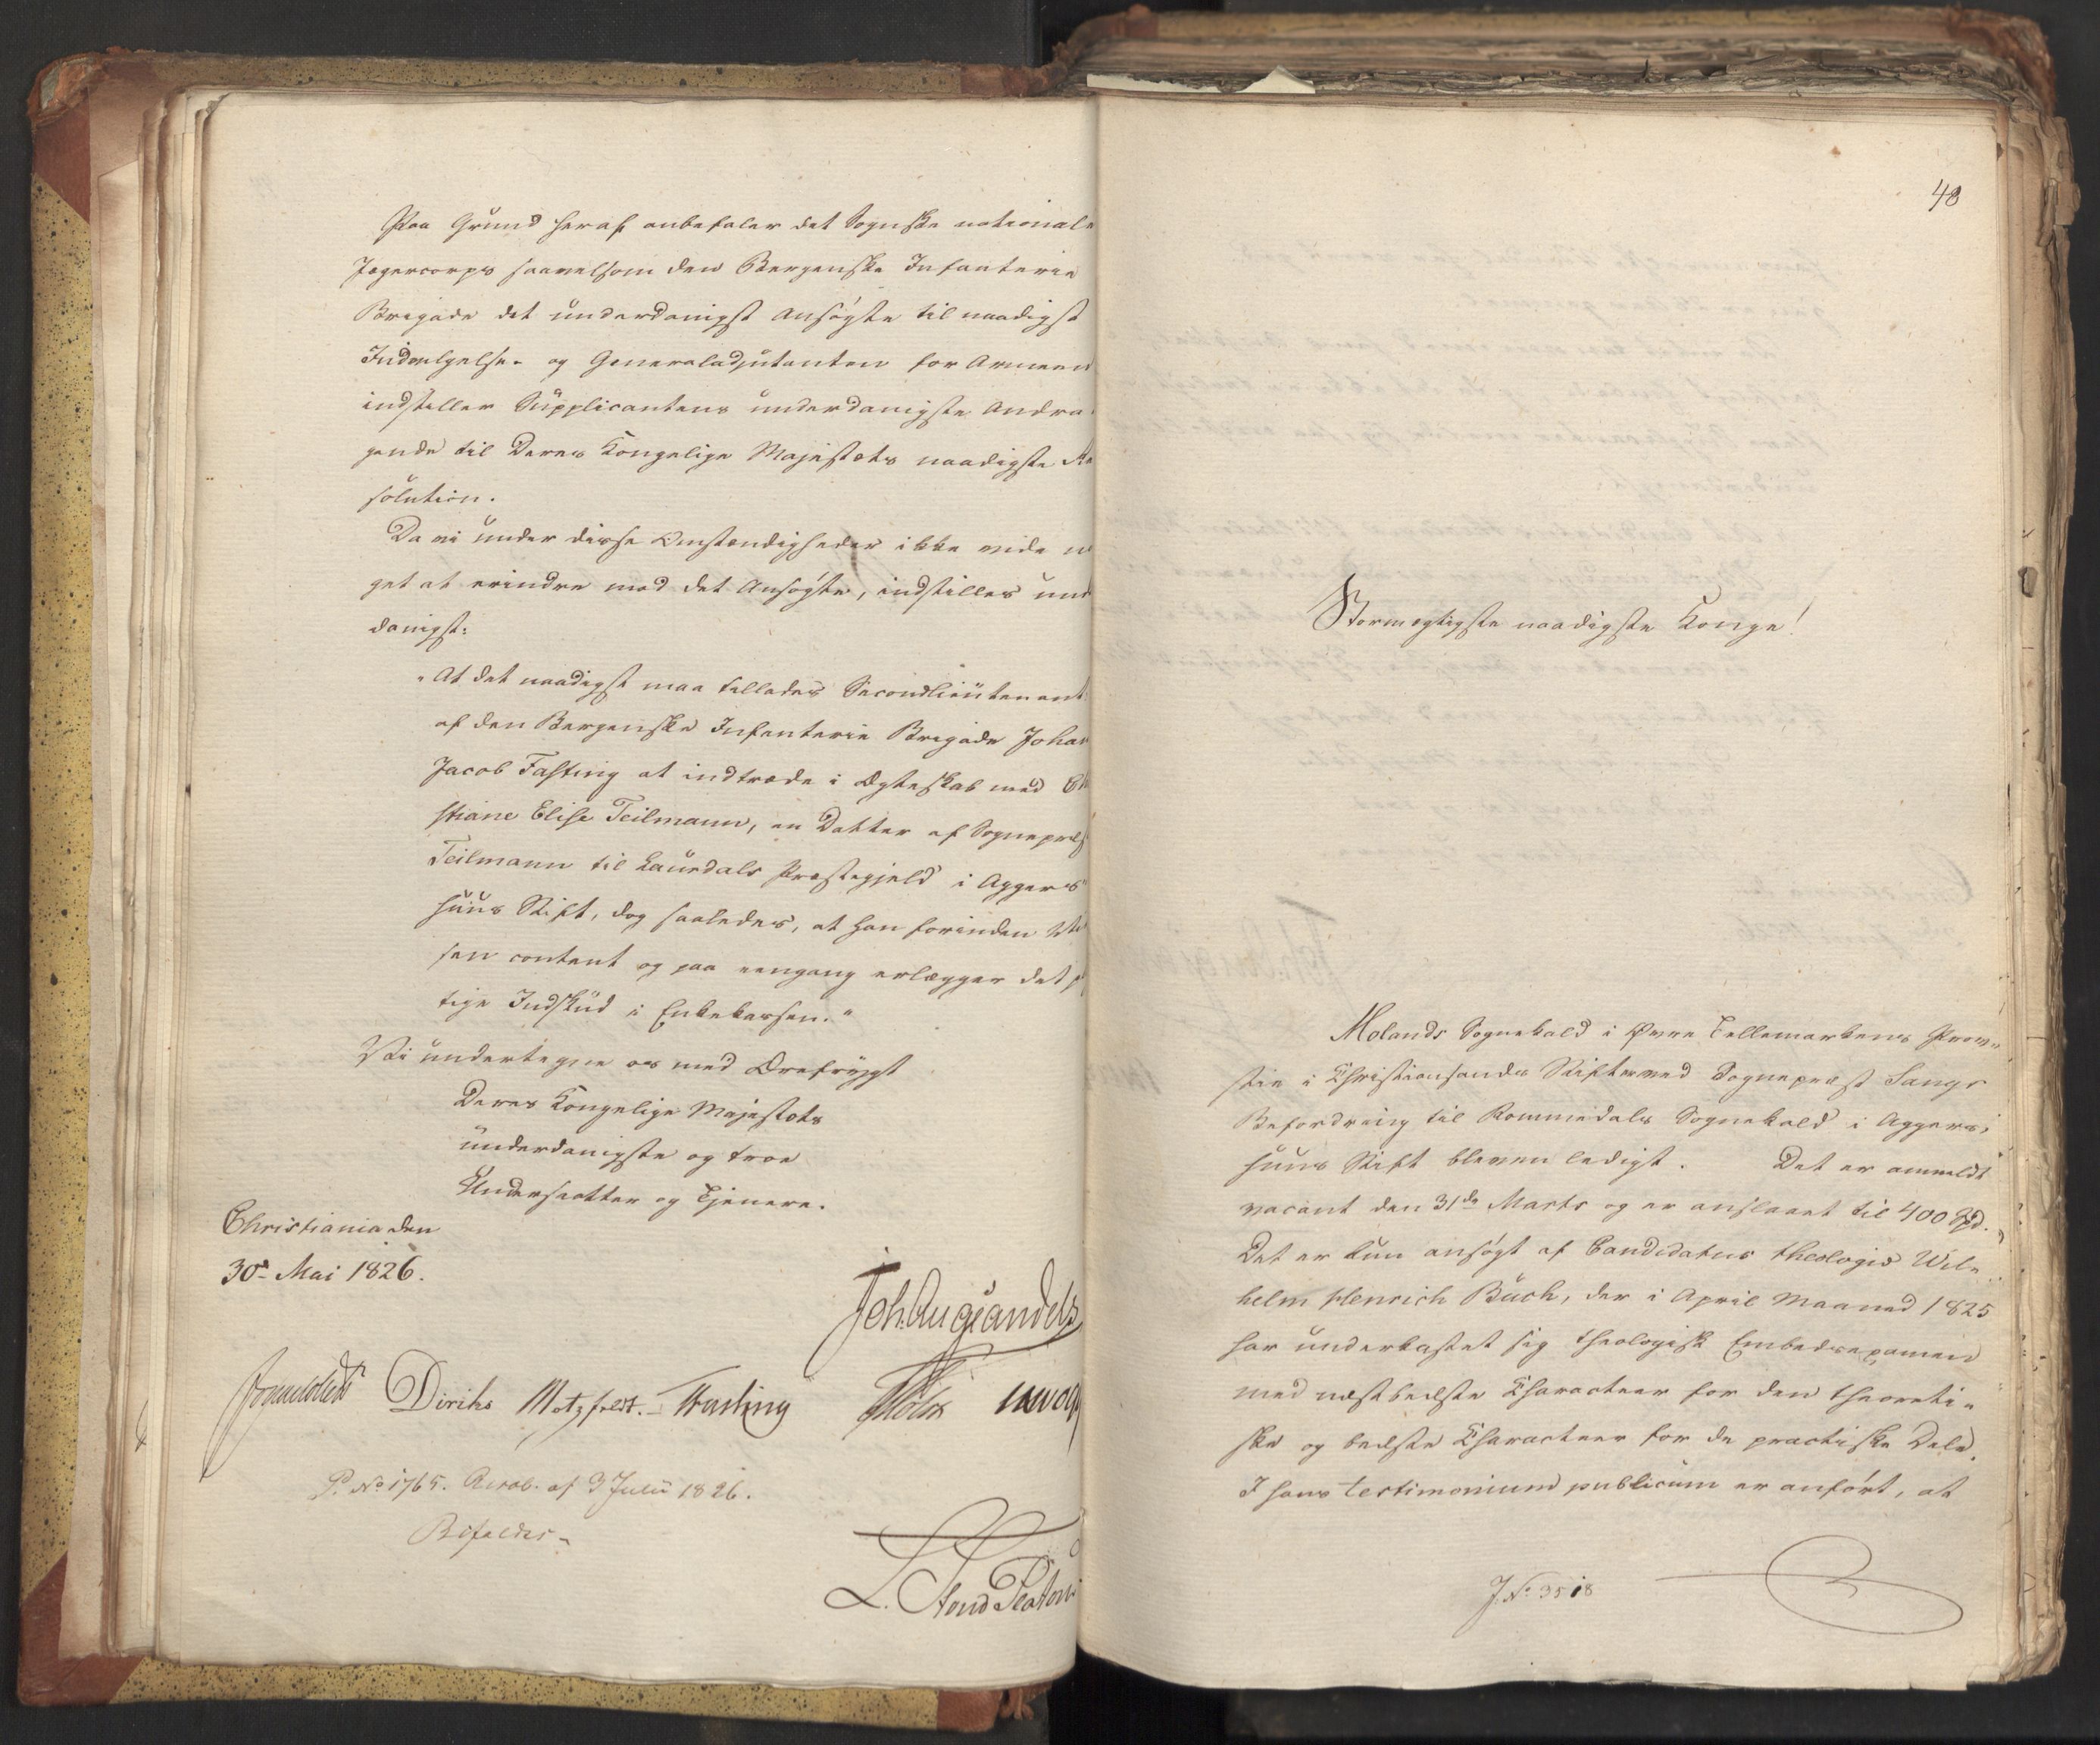 Paa Grund heraf anbefaler det Sognske nationale
Jægercorps saavelsom den Bergenske Infanterie
Brigade det underdanigst Ansøgte til naadigst
Indvilgelse. og Generaladjutanten for Armeen
indstiller Supplicantens underdanigste Andra-
gende til Deres Kongelige Majestæts naadigste Re
solution.
Da vi under disse Omstændigheder ikke vide no
get at erindre mod det Ansøgte, indstilles und
danigst:
"At det naadigst maa tillades Secondlieutenant
af den Bergenske Infanterie Brigade Johan
Jacob Fasting at indtræde i Ægteskab med Ch
stiane Elise Teilmann, en Datter af Sognepræst
Teilmann til Laurdals Præstegjeld i Aggers-
huus Stift, dog saaledes, at han forinden
sen contant og paa eengang erlægger det
tige Indskud i Enkekassen."
Vi undertegne os med Ærefrygt
Deres Kongelige Majestæts
underdanigste og troe
Undersaatter og Tjenere.
Christiania den
30 Mai 1826.
Joh. Aug Sandels
Sommerhielm Diriks Motzfeldt. Fasting Holst
P. No 1765. Resol. af 3 Julii 1826.
Bifaldes-
48
Stormægtigste naadigste Konge!
Molands Sognekald i Øvre Tellemarkens Prov-
stie i Christiansands Stift er ved Sognepræst Langs
Befordring til Rommedals Sognekald i Aggers-
huus Stift bleven ledigt. Det er anmeldt
vacant den 31de Marts og er anslaaet til 400 Spd.
Det er kun ansøgt af Candidatus theologiæ Wil-
helm Henrich Buch, der i April Maaned 1825
har underkastet sig theologisk Embedsexamen
med næstbedste Characteer for den theoreti-
ske og bedste Characteer for de practiske Dele.
I hans testimonium publicum er anført, at
J. No 3518